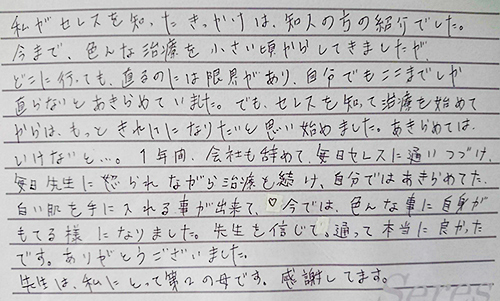 私がセレスを知ったきっかけは、知人の方の紹介でした。
今まで、色んな治療を小さい頃からしてきましたが、
どこに行っても、直るのには限界があり、自分でもここまでしか
直らないとあきらめていました。でも、セレスを知って治療を始めて
からは、もっときれいになりたいと思い始めました。あきらめては、
いけないと…。1年間、会社も辞めて、毎日セレスに通いつづけ、
毎日先生に怒られながら治療を続け、自分ではあきらめてた、
白い肌を手に入れる事が出来て、♡今では、色んな事に自身が
もてる様になりました。先生を信じて、通って本当に良かった
です。ありがとうございました。
先生は、私にとって第2の母です。感謝してます。